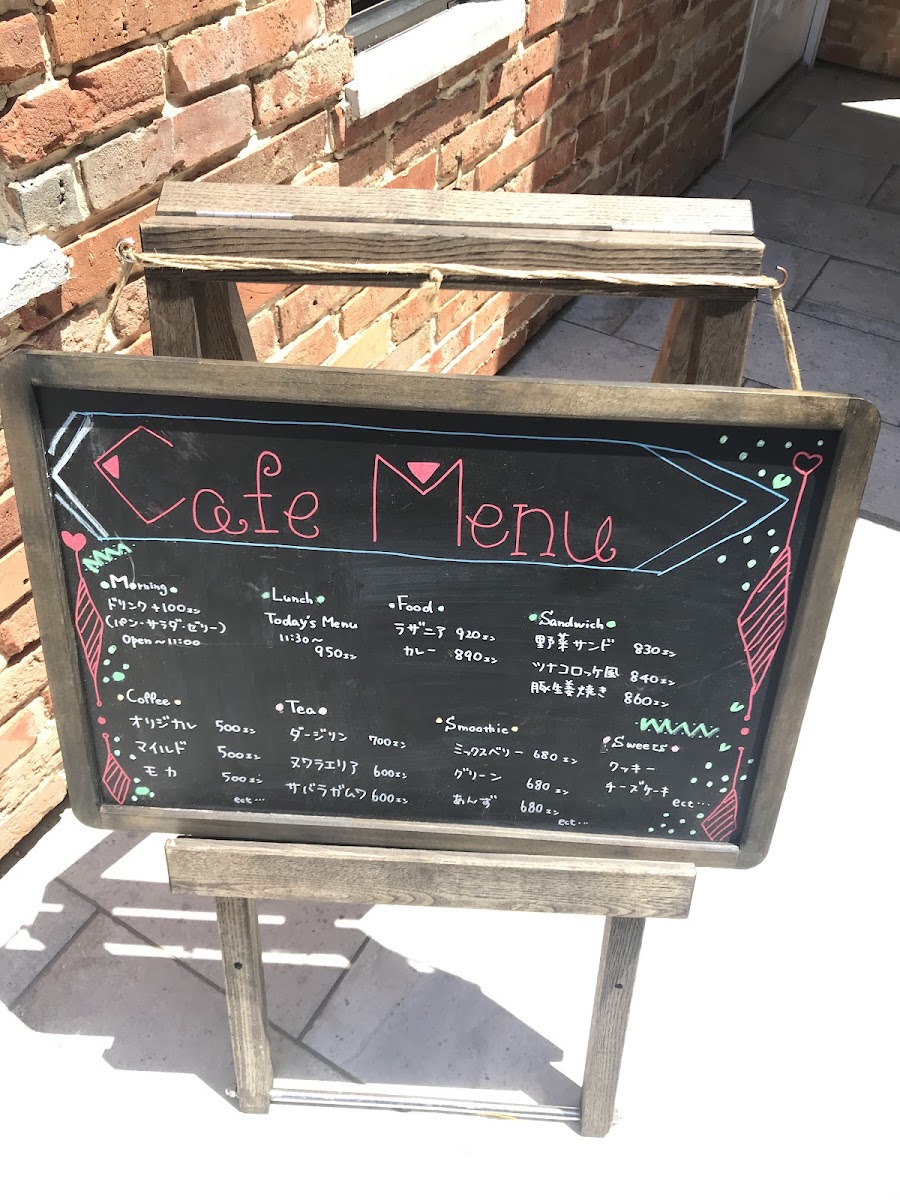 Cafe Menu
Morning
ドリンク+100エン
(パン・サラダ・ゼリー)
Open~11:00
Lunch
Today's Menu
11:30~
950エン
Food
ラザニア 920エン
カレー 890エン
Sandwich
野菜サンド 830エン
ツナコロッケ風 840エン
豚生姜焼き 860エン
Coffee
オリジナル 500エン
マイルド 500エン
モカ 500エン
ect...
Tea
ダージリン 700エン
ヌワラエリア 600エン
サバラガムワ 600エン
Smoothie
ミックスベリー 680エン
グリーン 680エン
あんず 680エン
ect...
Sweets
クッキー
チーズケーキ
ect...